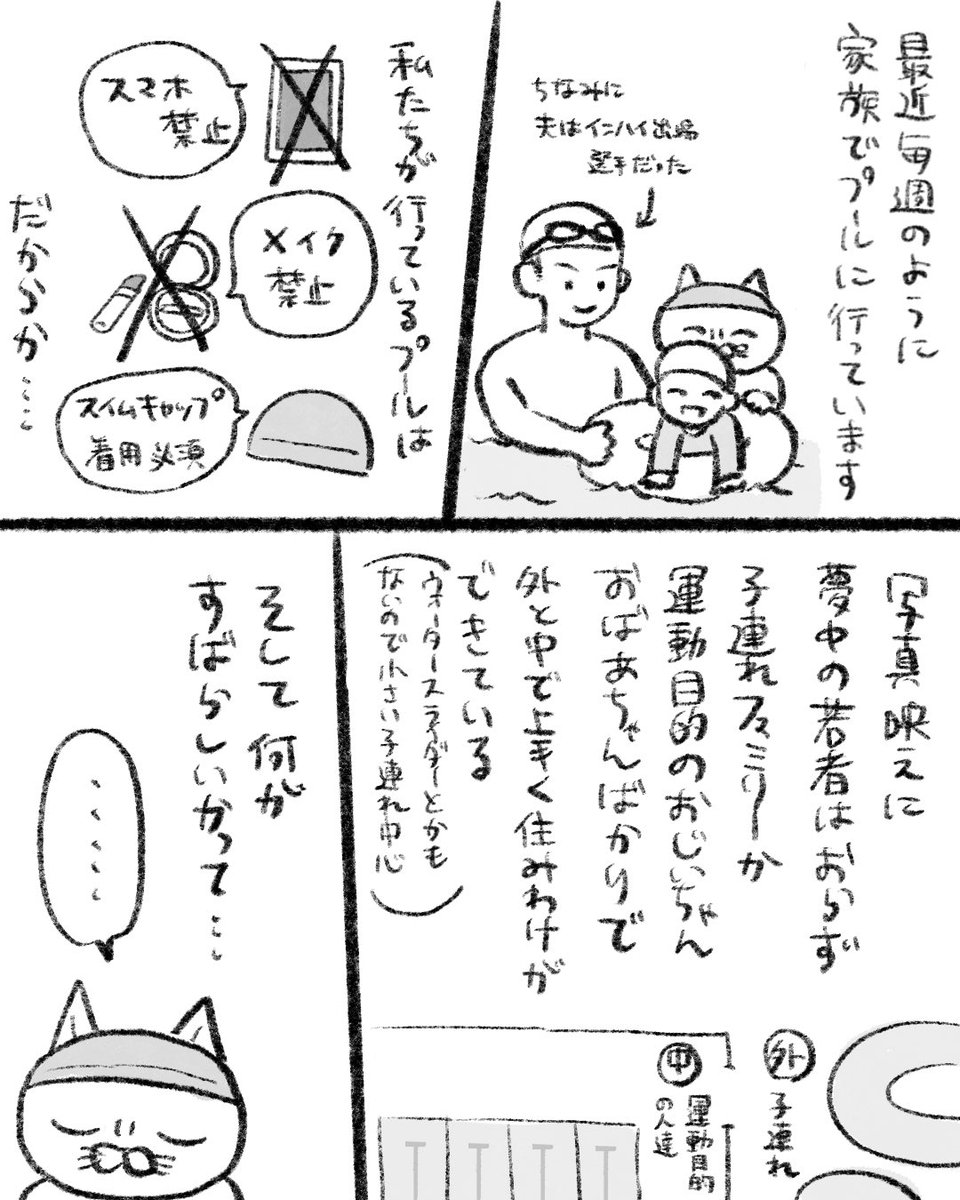 最近毎週のように
家族でプールに行っています
ちなみに
夫はインハイ出場
選手だった
私たちが行っているプールは
スマホ
禁止
メイク
禁止
スイムキャップ
着用必須
だからか……
写真映えに
夢中の若者はおらず
子連れファミリーか
運動目的のおじいちゃん
おばあちゃんばかりで
外と中で上手く住みわけが
できている
(ウォータースライダーとかも
ないので小さい子連れ中心)
外
子連れ
中
運動目的
の人達
そして何が
すばらしいかって……
、、、、、